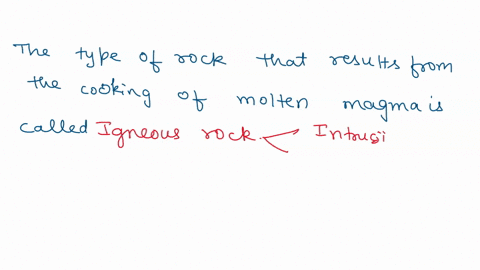 The type of rock that results from
the cooking of molten magma is
called Igneous rock Intrusi